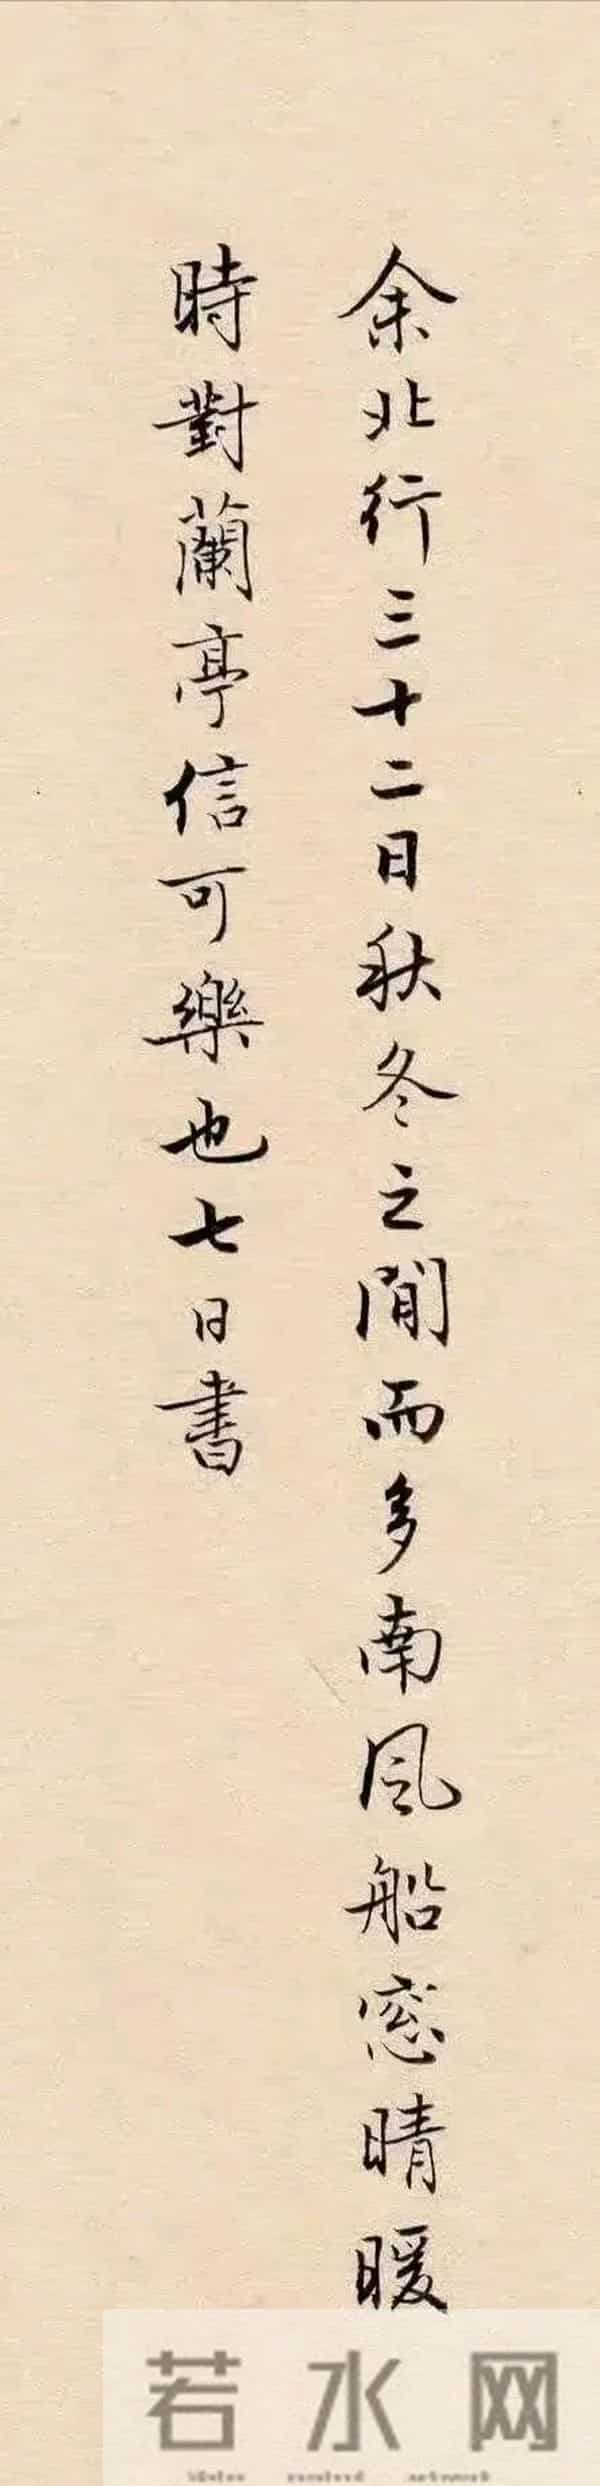 余北行三十二日秋冬之間而多南風船窓晴暖
時對蘭亭信可樂也七日書
若水网